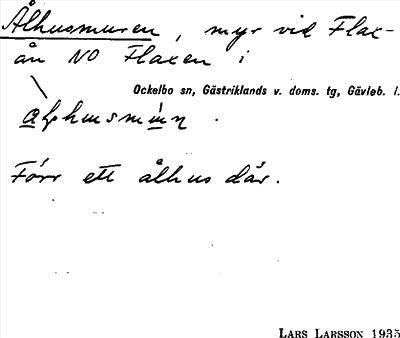 Ålhusmuren, myr vid Flax-
ån NO Flaxen i
Ockelbo sn, Gästriklands v. doms. tg, Gävleb. l.
Förr ett ålhus där.
LARS LARSSON 1935